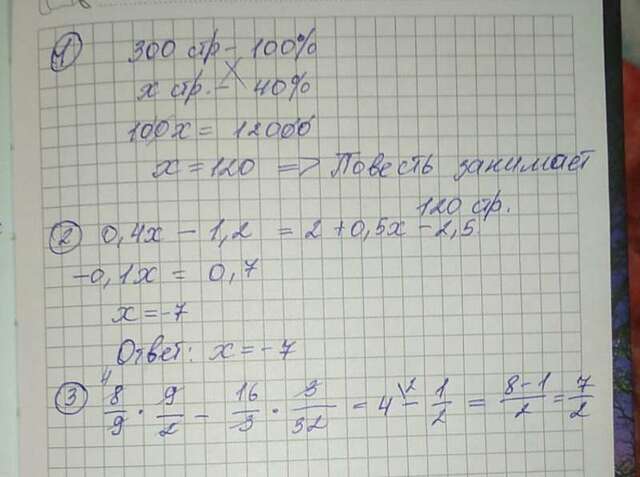 1 300 стр - 100%
x стр. - 40%
100x = 12000
x = 120 => Повесть занимает
120 стр.
2 0,4x - 1,2 = 2 + 0,5x - 2,5
-0,1x = 0,7
x = -7
Ответ: x = -7
3 8/9 · 9/2 - 16/3 · 3/32 = 4 - 1/2 = 8-1/2 = 7/2